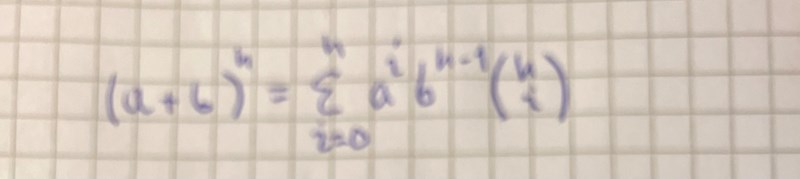 (a+b)^n = \sum_{i=0}^{n} a^i b^{n-1} \binom{n}{i}